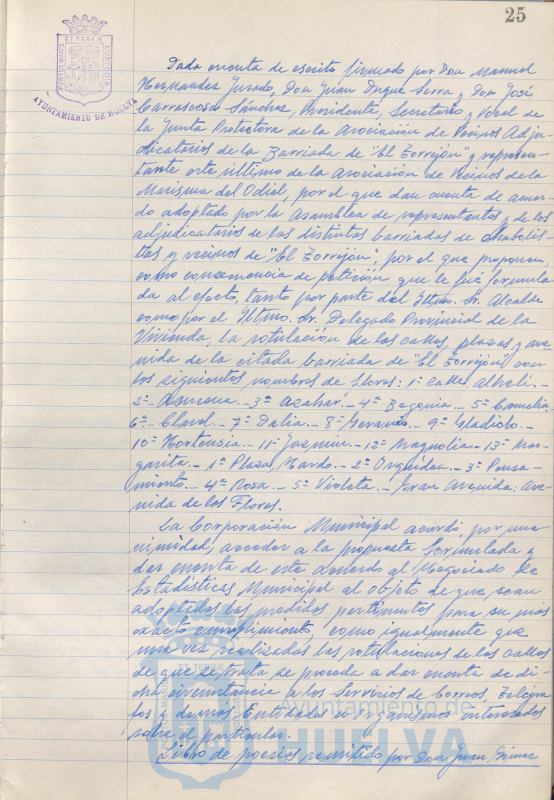 25
AYUNTAMIENTO DE HUELVA
Dada cuenta de escrito firmado por Don Manuel
Hernandez Jurado, Don Juan Duque Serra y Don José
Carrascosa Sánchez, Presidente, Secretario y Vocal de
la Junta Protectora de la Asociación de Vecinos Adju-
dicatarios de la Barriada de "El Torrejón" y represen-
tante este último de la Asociación de vecinos de la
Marisma del Odiel, por el que dan cuenta de acuer-
do adoptado por la Asamblea de representantes y de los
adjudicatarios de las distintas barriadas de chabolis-
tas y vecinos de "El Torrejón", por el que proponen,
como consecuencia de petición que le fué formula-
da al efecto, tanto por parte del Iltmo. Sr. Alcalde
como por el Iltmo. Sr. Delegado Provincial de la
Vivienda, la rotulación de las calles, plazas y ave-
nida de la citada barriada de "El Torrejón" con
los siguientes nombres de flores: 1ª calle Alhelí.-
2ª Azucena.- 3ª Azahar.- 4ª Begonia.- 5ª Camelia
6ª Clavel.- 7ª Dalia.- 8ª Geranio.- 9ª Gladiolo.-
10ª Hortensia.- 11ª Jazmin.- 12ª Magnolia.- 13ª Mar-
garita.- 1ª Plaza, Nardo.- 2ª Orquídea.- 3ª Pensa-
miento.- 4ª Rosa.- 5ª Violeta.- Gran Avenida: Ave-
nida de las Flores.
La Corporación Municipal acordó, por una-
nimidad, acceder a la propuesta formulada y
dar cuenta de este acuerdo al Negociado de
Estadísticas Municipal al objeto de que sean
adoptadas las medidas pertinentes para su más
exacto cumplimiento, como igualmente que
una vez realizadas las rotulaciones de las calles
de que se trata se proceda a dar cuenta de di-
cha circunstancia a los Servicios de Correos, Telegra-
fos y demás Entidades u Organismos interesados
sobre el particular.
Libro de poesías remitido por Don Juan Gómez
Ayuntamiento de
HUELVA